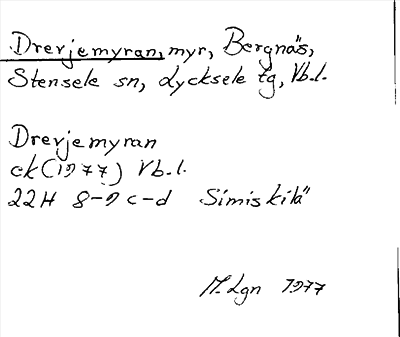 Drevjemyran, myr, Bergnäs,
Stensele sn, Lycksele tg, Vb.l.
Drevjemyran
ek (1977) Vb.l.
22H 8-9 c-d Simiskilä
M. Lgn 1977